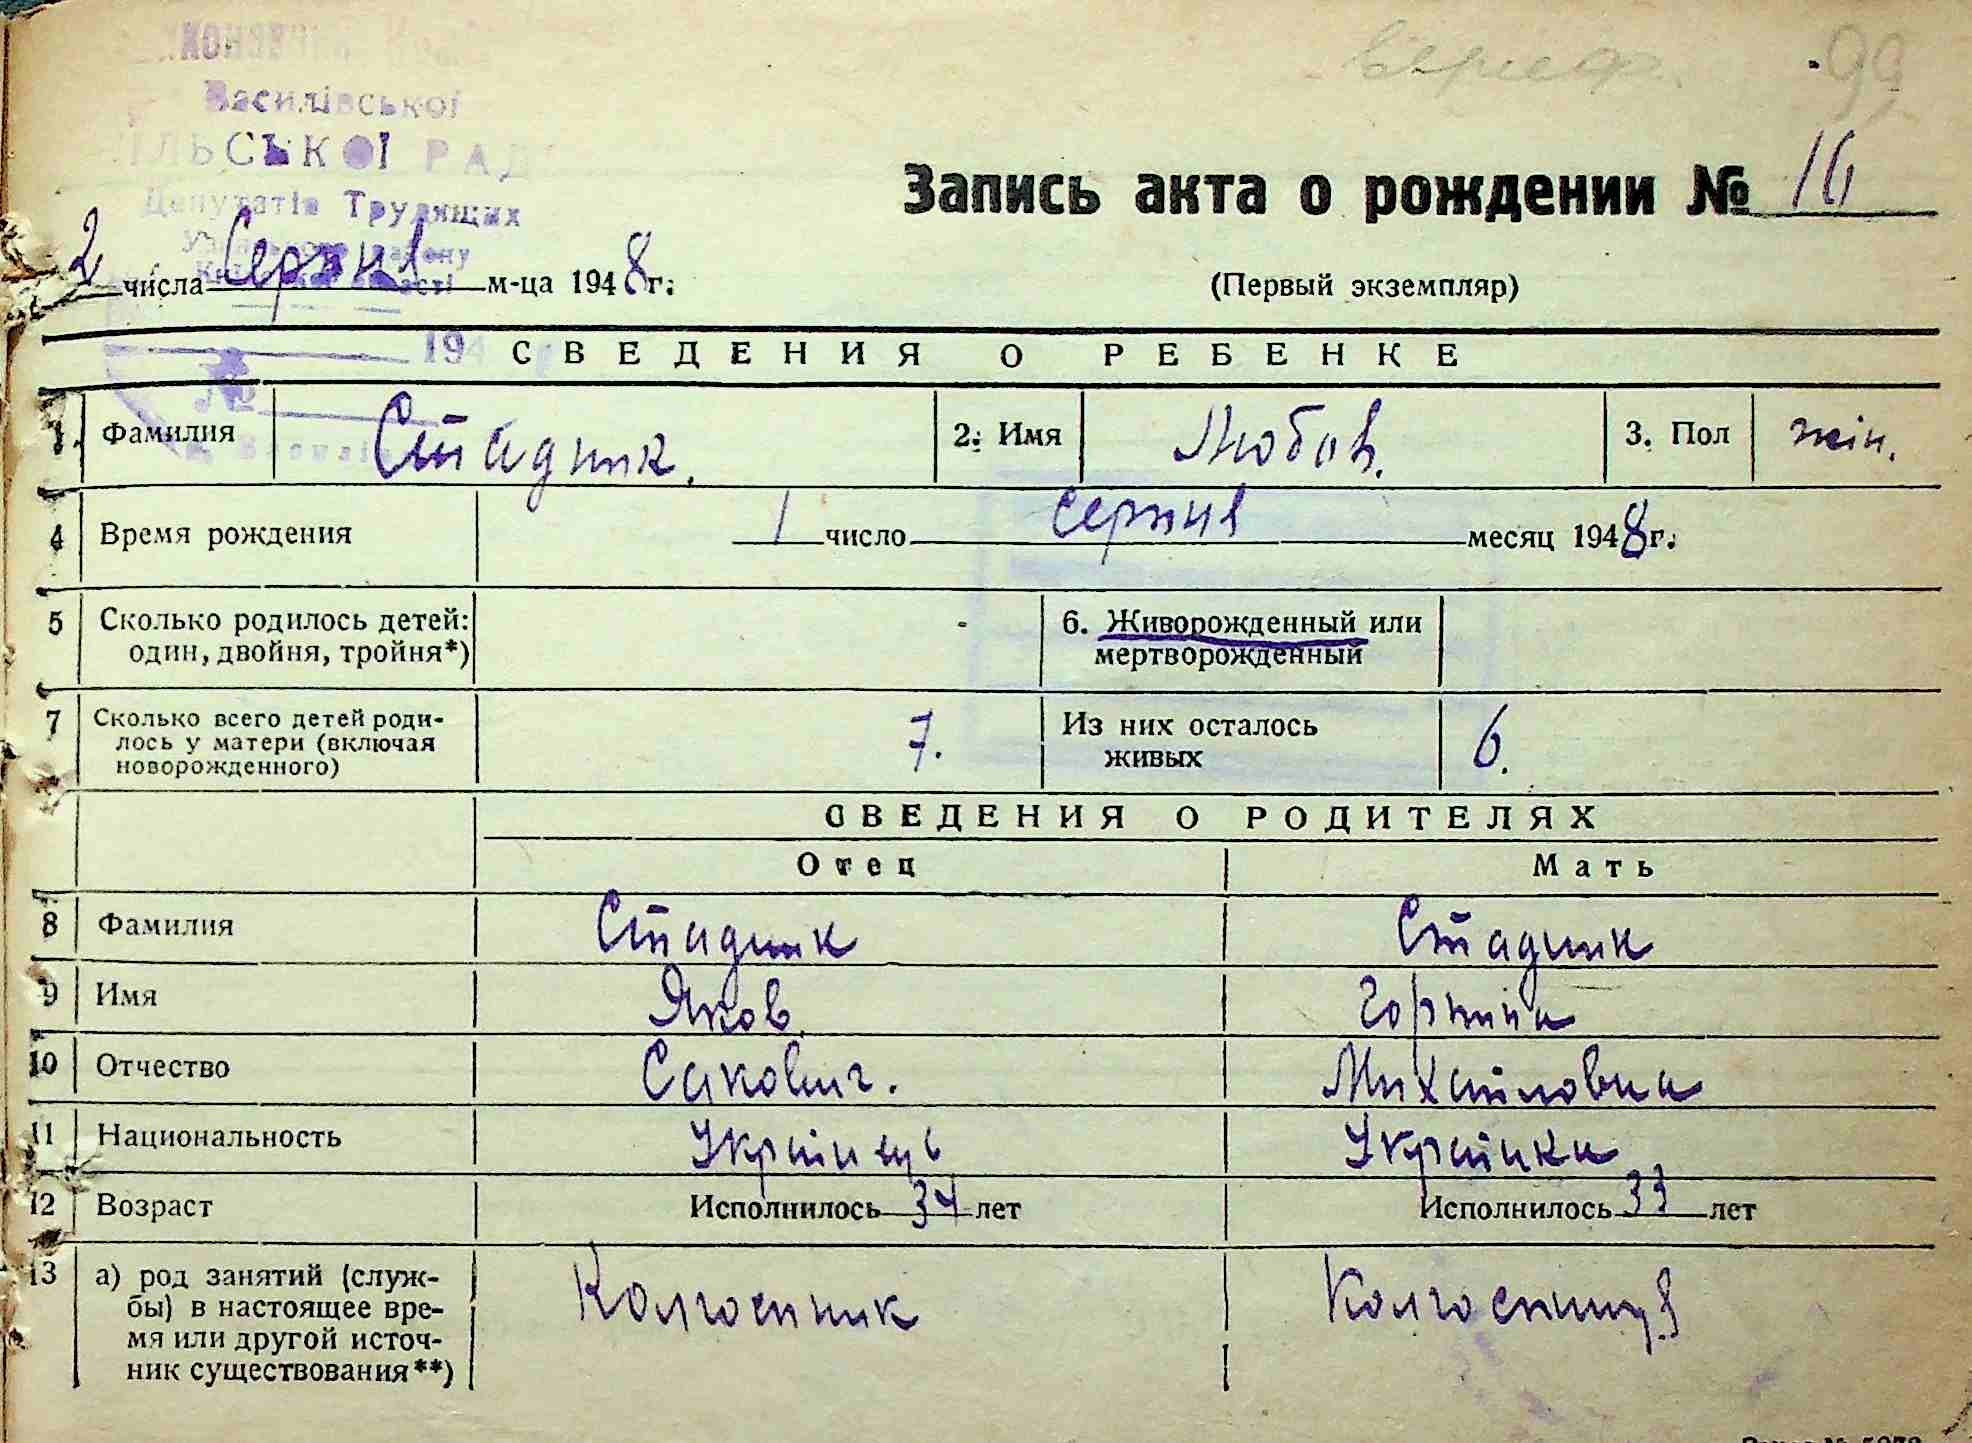 Василівської
СІЛЬСЬКОЇ РАДИ
Депутатів Трудящих
вериф. 99
Запись акта о рождении № 16
2 числа Серпня м-ца 1948 г.
(Первый экземпляр)
194
№
СВЕДЕНИЯ О РЕБЕНКЕ
1. Фамилия Стадник. 2. Имя Любов. 3. Пол жін.
4 Время рождения 1 число серпня месяц 1948 г.
5 Сколько родилось детей: 6. Живорожденный или
один, двойня, тройня*) мертворожденный
7 Сколько всего детей роди- 7. Из них осталось 6.
лось у матери (включая живых
новорожденного)
СВЕДЕНИЯ О РОДИТЕЛЯХ
Отец Мать
8 Фамилия Стадник Стадник
9 Имя Яков Горпина
10 Отчество Сакович. Михайловна
11 Национальность Українець Українка
12 Возраст Исполнилось 34 лет Исполнилось 33 лет
13 а) род занятий (служ- Колгоспник Колгоспниця
бы) в настоящее вре-
мя или другой источ-
ник существования**)